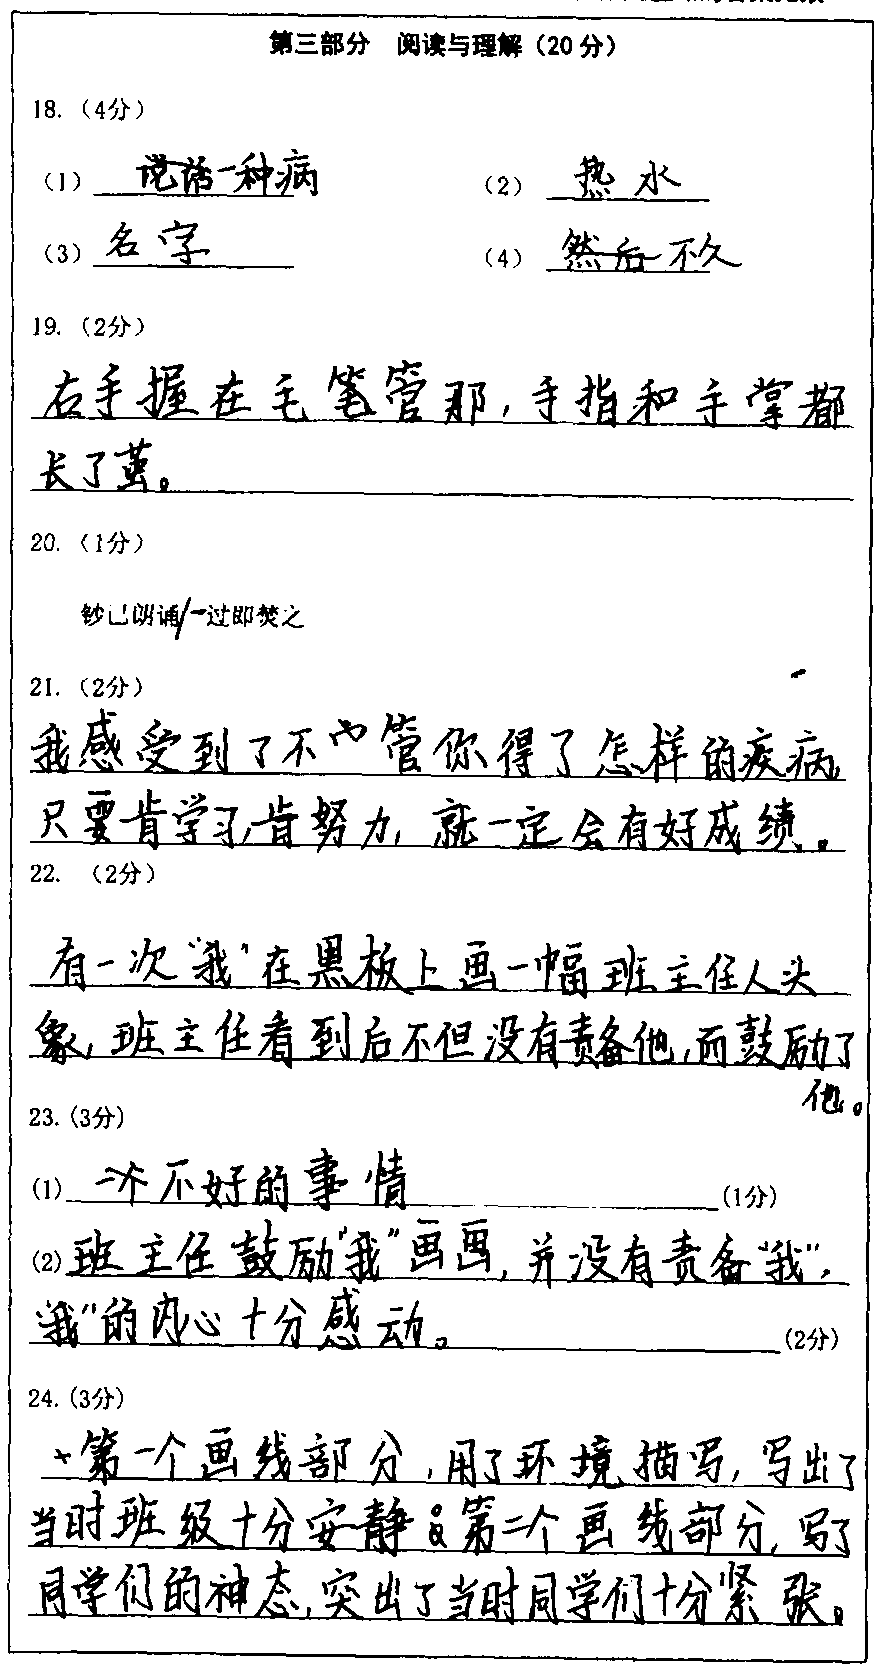 第三部分 阅读与理解（20分）
18.（4分）
（1）说话一种病 （2）热水
（3）名字 （4）然后不久
19.（2分）
右手握在毛笔管那，手指和手掌都
长了茧。
20.（1分）
钞已朗诵/一过即焚之
21.（2分）
我感受到了不管你得了怎样的疾病，
只要肯学习，肯努力，就一定会有好成绩。
22. （2分）
有一次“我”在黑板上画一幅班主任人头
象，班主任看到后不但没有责备他，而鼓励了
他。
23.(3分)
(1) 一个不好的事情 (1分)
(2) 班主任鼓励“我”画画，并没有责备“我”，
“我”的内心十分感动。 (2分)
24.(3分)
第一个画线部分，用了环境描写，写出了
当时班级十分安静。第二个画线部分，写了
同学们的神态，突出了当时同学们十分紧张。